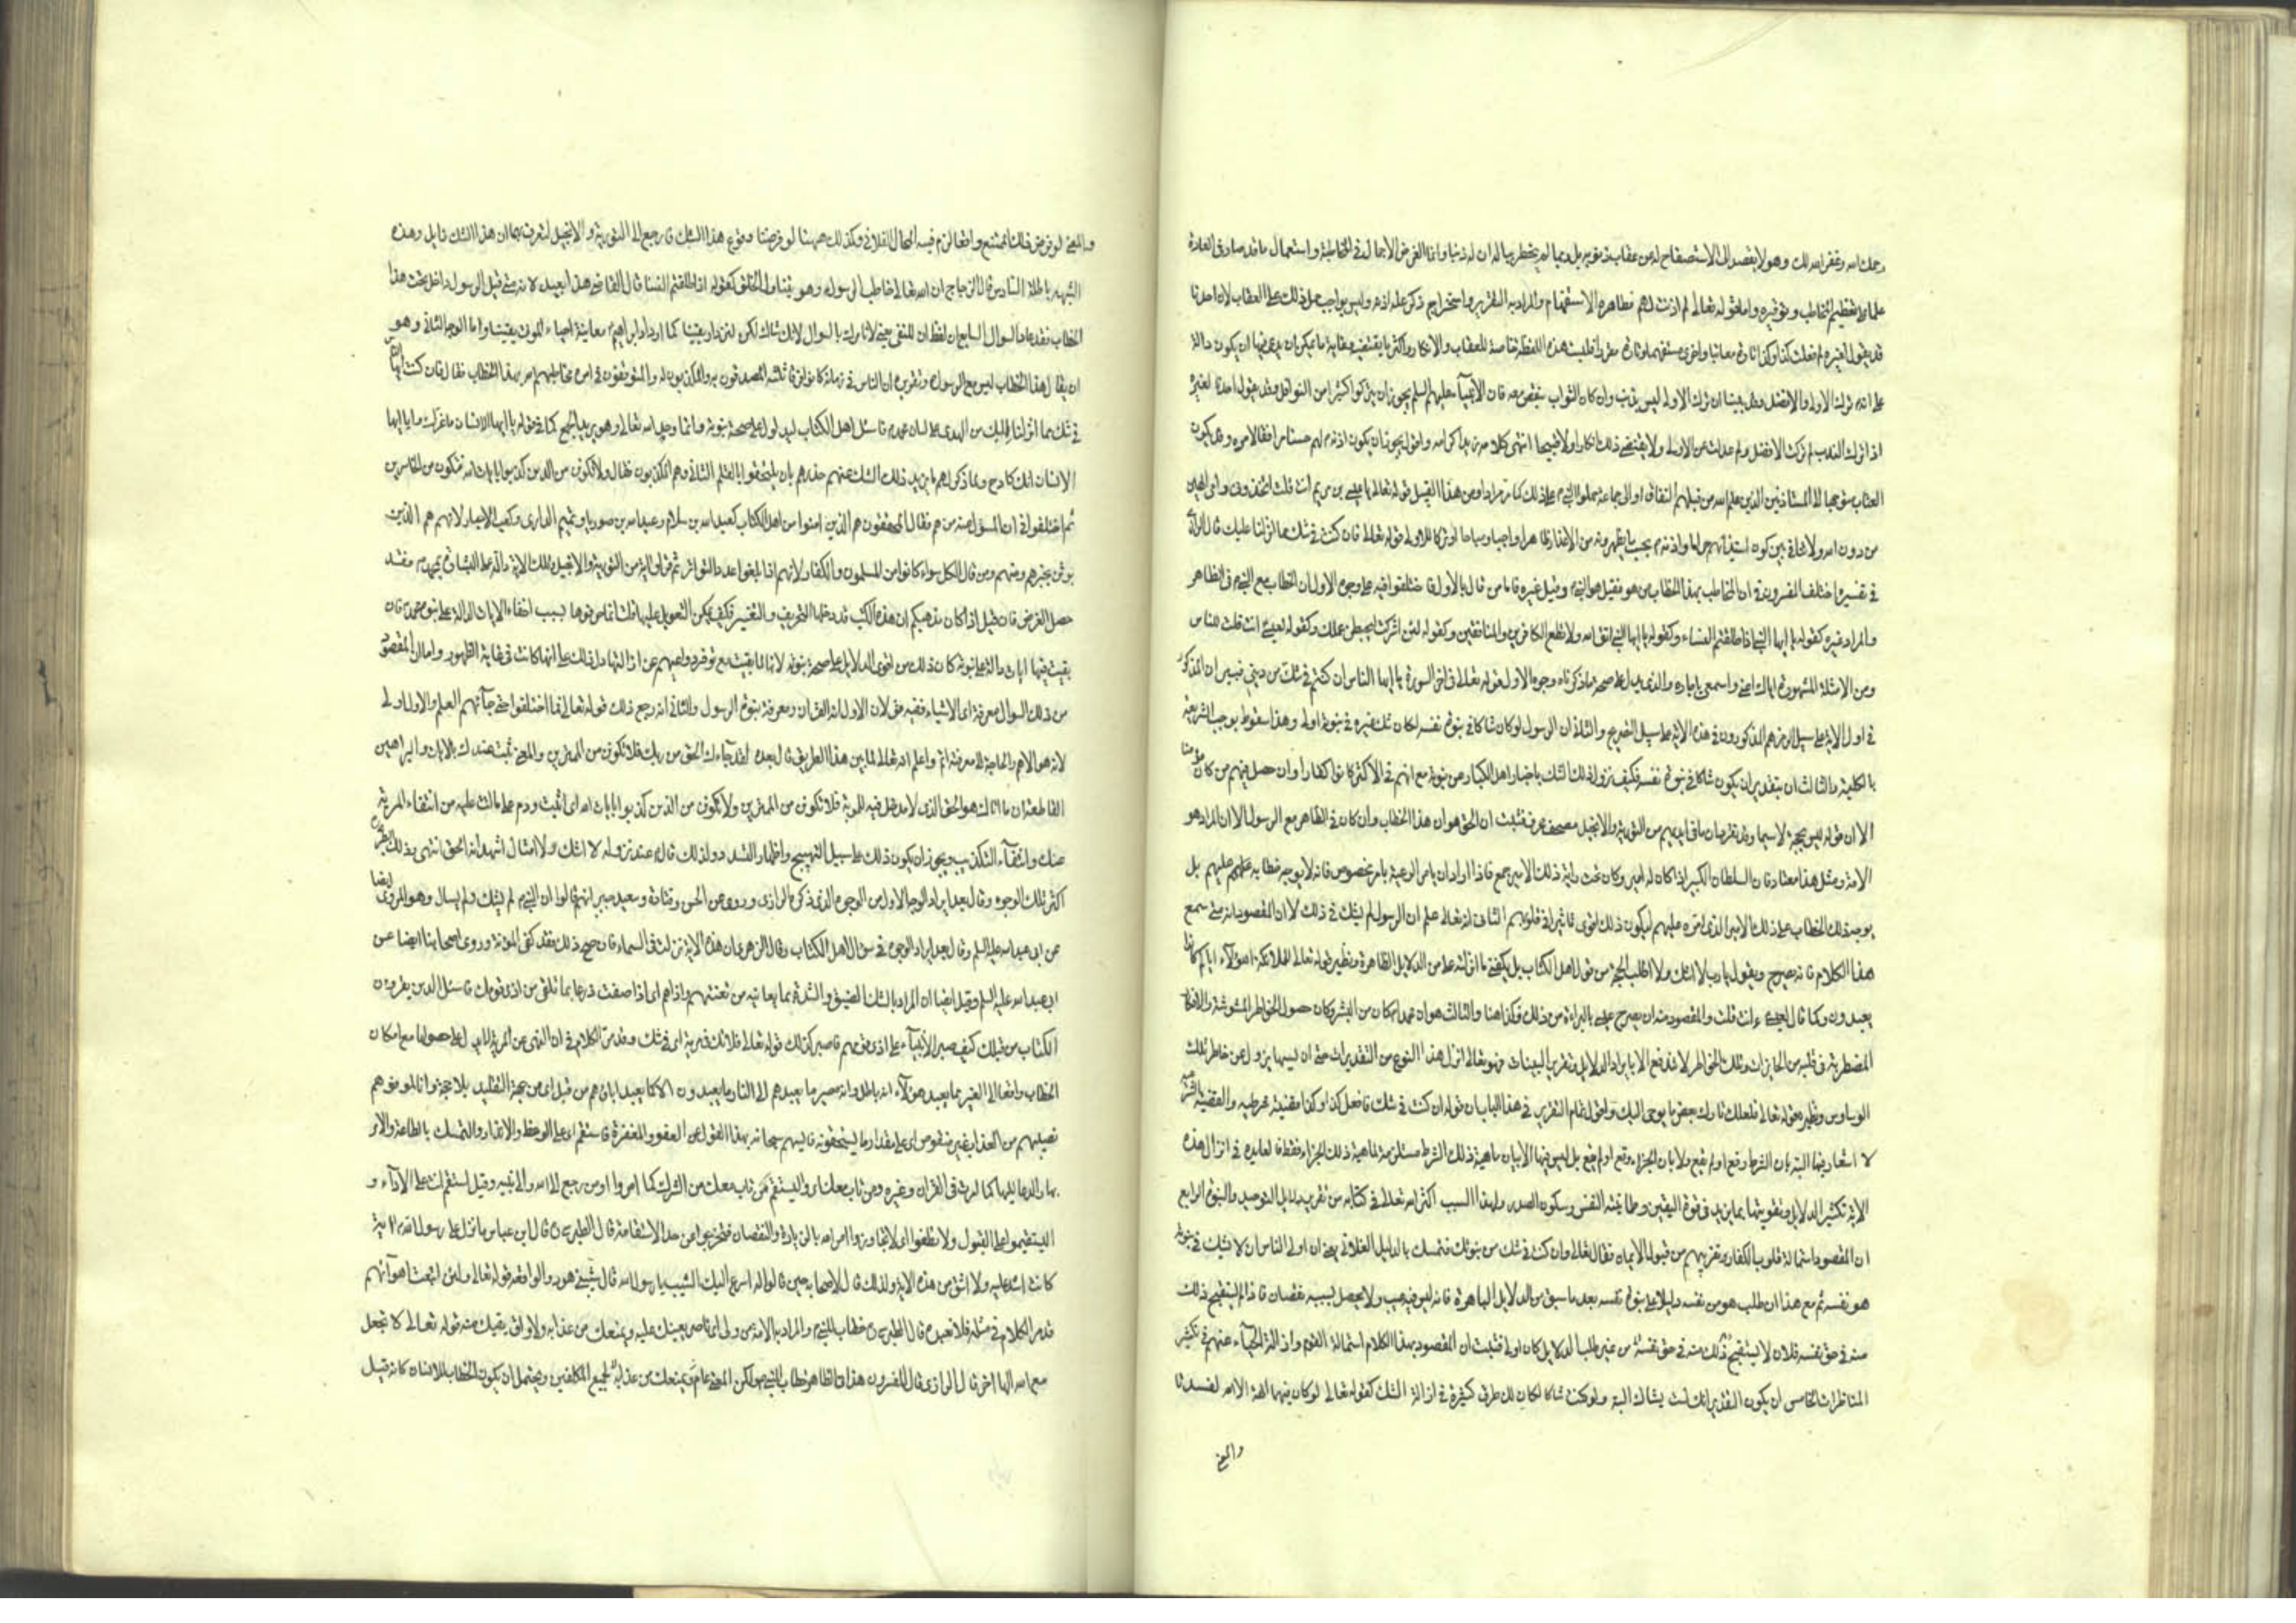 رحمك الله وغفر الله لك وهو لا يقصد الى الاستصفاح له من عقاب ذنوبه بل ربما لم يخطر بباله ان له ذنبا وانما الغرض الاجمال في المخاطبة واستعمال ما قد صار في العادة
علما على تعظيم المخاطب وتوقيره واما قوله تعالى لم اذنت لهم فظاهره الاستفهام والمراد به التقرير واستخراج ذكر علة اذنه وليس بواجب حمل ذلك على العقاب لان احدنا
قد يقول لغيره لم فعلت كذا وكذا تارة معاتبا واخرى مستفهما وتارة مقررا فليست هذه اللفظة خاصة للعقاب والانكار واكثر ما يقتضيه وغاية ما يمكن ان يدعى فيها ان يكون دالة
على انه ترك الاولى والافضل وقد بينا ان ترك الاولى ليس بذنب وان كان الثواب ينقص معه فان الانبياء عليهم السلم يجوز ان يتركوا كثيرا من النوافل وقد يقول احدنا لغيره
اذا ترك الندب لم تركت الافضل ولم عدلت عن الاولى ولا يقتضي ذلك انكارا ولا قبيحا انتهى كلامه زيد اكرامه واقول يجوز ان يكون اذنه لهم مستلزما وقد يكون
العتاب متوجها الى المستاذنين الذين علم الله من قبلهم النفاق او الى جماعة حملوا النبي على ذلك كما مر مرارا ومن هذا القبيل قوله تعالى يا عيسى بن مريم انت قلت اتخذوني وامي الهين
من دون الله ولا تنافي بين كون استيذانهم حراما واذنه بحسب ما يظهرونه من الاعذار ظاهرا واجبا او مباحا او تركا للاولى قوله تعالى فان كنت في شك مما انزلنا عليك قال الرازي
في تفسيره اختلف المفسرون في ان المخاطب بهذا الخطاب من هو فقيل هو النبي وقيل غيره فاما من قال بالاول فاختلفوا فيه على وجوه الاول ان الخطاب مع النبي في الظاهر
والمراد غيره كقوله يا ايها النبي اذا طلقتم النساء وكقوله يا ايها النبي اتق الله ولا تطع الكافرين والمنافقين وكقوله لئن اشركت ليحبطن عملك وكقوله لعيسى انت قلت للناس
ومن الامثلة المشهورة اياك اعني واسمعي يا جاره والذي يدل على صحة ما ذكرناه وجوه الاول قوله تعالى في اخر السورة يا ايها الناس ان كنتم في شك من ديني فبين ان المذكور
في اول الاية على سبيل الرمز هم المذكورون في هذه الاية على سبيل التصريح والثاني ان الرسول لو كان شاكا في نبوة نفسه لكان شك غيره في نبوته اولى وهذا سقوط يوجب الشريعة
بالكلية والثالث ان بتقدير ان يكون شاكا في نبوة نفسه فكيف يزول ذلك الشك باخبار اهل الكتاب عن نبوته مع انهم في الاكثر كانوا كفارا وان حصل فيهم من كان مؤمنا
الا ان قوله ليس بحجة لاسيما وقد تقرر ان ما في ايديهم من التورية والانجيل مصحف محرف فثبت ان الحق هو ان هذا الخطاب وان كان في الظاهر مع الرسول الا ان المراد هو
الامة ومثل هذا معتاد فان السلطان الكبير اذا كان له امير وكان تحت راية ذلك الامير جمع فاذا اراد ان يامر الرعية بامر مخصوص فانه لا يوجه خطابه عليهم بل
يوجه ذلك الخطاب على ذلك الامير الذي امره عليهم ليكون ذلك اقوى تاثيرا في قلوبهم الثاني انه تعالى علم ان الرسول لم يشك في ذلك الا ان المقصود انه متى سمع
هذا الكلام فانه يصرح ويقول يا رب لا اشك ولا اطلب الحجة من قول اهل الكتاب بل يكفيني ما انزلته على من الدلايل الظاهرة ونظيره قوله تعالى للملائكة اهؤلاء اياكم كانوا
يعبدون وكما قال لعيسى ءانت قلت والمقصود منه ان يصرح عيسى بالبراءة من ذلك فكذا هنا والثالث هو ان محمدا كان من البشر وكان حصول الخواطر المشوشة والافكار
المضطربة في قلبه من الجايزات وتلك الخواطر لا تندفع الا بايراد الدلايل وتقرير البينات فهو تعالى انزل هذا النوع من التقديرات حتى ان بسببها يزول عن خاطره تلك
الوساوس ونظيره قوله تعالى فلعلك تارك بعض ما يوحى اليك واقول تمام التقرير في هذا الباب ان قوله ان كنت في شك فافعل كذا وكذا قضية شرطية والقضية الشرطية
لا اشعار فيها البتة بان الشرط وقع او لم يقع ولا بان الجزاء وقع او لم يقع بل ليس فيها الا بيان ماهية ذلك الشرط مستلزمة لماهية ذلك الجزاء فقط فالفايدة في انزال هذه
الاية تكثير الدلايل وتقويتها بما يزيد في قوة اليقين وطمانينة النفس وسكون الصدر ولهذا السبب اكثر الله تعالى في كتابه من تقرير دلايل التوحيد والنبوة الرابع
ان المقصود استمالة قلوب الكفار وتقريبهم من قبول الايمان فقال تعالى وان كنت في شك من نبوتك فتمسك بالدليل الفلاني يعني ان اولى الناس ان لا يشك في نبوته
هو نفسه ثم مع هذا ان طلب هو من نفسه دليلا على نبوة نفسه بعد ما سبق من الدلايل الباهرة فانه ليس فيه عيب ولا يحصل بسببه نقصان فاذا لم يستقبح ذلك
منه في حق نفسه فلان لا يستقبح ذلك منه في حق نفسه من غيره طلبا للدلايل كان اولى فثبت ان المقصود بهذا الكلام استمالة القوم وازالة الحياء عنهم في تكثير
المناظرات الخامس ان يكون التقدير انك لست بشاك البتة ولو كنت شاكا لكان لك طرق كثيرة في ازالة الشك كقوله تعالى لو كان فيهما الهة الا الله لفسدتا
والمعنى
والمعنى لو فرض ذلك الممتنع واقعا لزم فيه المحال الفلاني وكذلك ههنا لو فرضنا وقوع هذا الشك فارجع الى التورية والانجيل لتعرف بهما ان هذا الشك زايل وهذه
الشبهة باطلة السادس قال الزجاج ان الله تعالى خاطب الرسول وهو يتناول الخلق كقوله اذا طلقتم النسا قال القاضي هذا بعيد لانه متى قيل الرسول داخل تحت هذا
الخطاب فقد عاد السوال السابع ان لفظ ان للنفي يعني لا نامرك بالسوال لانك شاك لكن لتزداد يقينا كما ازداد ابراهيم معاينة احياء الموتى يقينا واما الوجه الثاني وهو
ان يقال هذا الخطاب ليس مع الرسول وتقريره ان الناس في زمانه كانوا فرقا ثلثة المصدقون به والمكذبون له والمتوقفون في امره فخاطبهم الله بهذا الخطاب فقال فان كنت ايها الانسان
في شك مما انزلنا اليك من الهدى على لسان محمد فاسئل اهل الكتاب ليدلوك على صحة نبوته وانما وحد الله تعالى وهو يريد الجمع كما في قوله يا ايها الانسان ما غرك ويا ايها
الانسان انك كادح ولما ذكر لهم ما يزيل ذلك الشك عنهم حذرهم بان يلتحقوا بالقسم الثاني وهم المكذبون فقال ولا تكونن من الذين كذبوا بايات الله فتكون من الخاسرين
ثم اختلفوا في ان المسؤل منه من هم فقال المحققون هم الذين امنوا من اهل الكتاب كعبد الله بن سلام وعبد الله بن صوريا وتميم الداري وكعب الاحبار لانهم هم الذين
يوثق بخبرهم ومنهم من قال الكل سواء كانوا من المسلمون والكفار لانهم اذا بلغوا عدد التواتر ثم قرؤا اية من التورية والانجيل وتلك الاية دالة على البشارة بمحمد فقد
حصل الغرض فان قيل اذا كان مذهبكم ان هذه الكتب قد دخلها التحريف والتغيير فكيف يمكن التعويل عليها قلت انما حرفوها بسبب اخفاء الايات الدالة على نبوة محمد فان
بقيت فيها ايات دالة على نبوته كان ذلك من اقوى الدلايل على صحة نبوته لانها لما بقيت مع توفر دواعيهم على ازالتها دل ذلك على انها كانت في غاية الظهور واما ان المقصود
من ذلك السوال معرفة اي الاشياء ففيه قولان الاول انه القران ومعرفة نبوة الرسول والثاني انه رجع ذلك قوله تعالى فما اختلفوا حتى جاءهم العلم والاول اولى
لانه هو الاهم والحاجة الى معرفته اتم واعلم انه تعالى لما بين هذا الطريق قال بعده لقد جاءك الحق من ربك فلا تكونن من الممترين والمعنى ثبت عندك بالايات والبراهين
القاطعة ان ما اتاك هو الحق الذي لا مدخل فيه للمرية فلا تكونن من الممترين ولا تكونن من الذين كذبوا بايات الله اي اثبت ودم على ما انت عليه من انتفاء المرية
عنك وانتفاء التكذيب ويجوز ان يكون ذلك على سبيل التهييج واظهار التشدد ولذلك قال عند نزوله لا اشك ولا اسئل اشهد انه الحق انتهى وذكر الطبرسي
اكثر تلك الوجوه وقال بعد ايراد الوجه الاول من الوجوه الذي ذكره الرازي وروي عن الحسن وقتادة وسعيد بن جبير انهم قالوا ان النبي لم يشك ولم يسال وهو المروي ايضا
عن ابي عبد الله عليه السلم وقال بعد ايراد الوجوه في سؤال اهل الكتاب وقال الزهري ان هذه الاية نزلت في السماء فان صح ذلك فقد كفى المؤنة وروى اصحابنا ايضا عن
ابي عبد الله عليه السلم وقيل ايضا ان المراد بالشك الضيق والشدة بما يعانيه من تعنتهم واذاهم اي اذا ضقت ذرعا بما تلقى من اذى قومك فاسئل الذين يقرؤن
الكتاب من قبلك كيف صبر الانبياء على اذى قومهم فاصبر كذلك قوله تعالى فلا تك في مرية اي في شك وقد مر الكلام في ان النهي عن المرية لا يدل على حصولها مع امكان
الخطاب واقعا الى الغير مما يعبد هؤلاء انه باطل وانه مصير ما يعبدهم الى النار ما يعبدون الا كما يعبد اباؤهم من قبل اي من جهة التقليد بلا حجة وانا لموفوهم
نصيبهم من العذاب غير منقوص اي على مقدار ما يستحقونه فايسهم سبحانه بهذا القول عن العفو والمغفرة فاستقم اي على الوعظ والانذار والتمسك بالطاعة والامر
بها والدعاء اليها كما امرت في القران وغيره ومن تاب معك اي وليستقم من تاب معك من الشرك كما امروا او من رجع الى الله والى نبيه وقيل استقم انت على الاداء و
ليستقيموا على القبول ولا تطغوا اي لا تجاوزوا امر الله بالزيادة والنقصان فتخرجوا عن حد الاستقامة قال الطبرسي قال ابن عباس ما نزل على رسول الله اية
كانت اشد عليه ولا اشق من هذه الاية ولذلك قال لاصحابه حين قالوا له اسرع اليك الشيب يا رسول الله قال شيبتني هود والواقعة قوله تعالى ولئن اتبعت اهواءهم
قد مر الكلام في مثله فلا نعيده قال الطبرسي خطاب للنبي والمراد به الامة من ولي اي ناصر يعينك عليه ويمنعك من عذابه ولا واق يقيك منه قوله تعالى لا تجعل
مع الله الها اخر قال الرازي قال المفسرون هذا في الظاهر خطاب للنبي ولكن المعنى عام لجميع المكلفين ويحتمل ان يكون الخطاب للانسان كانه قيل